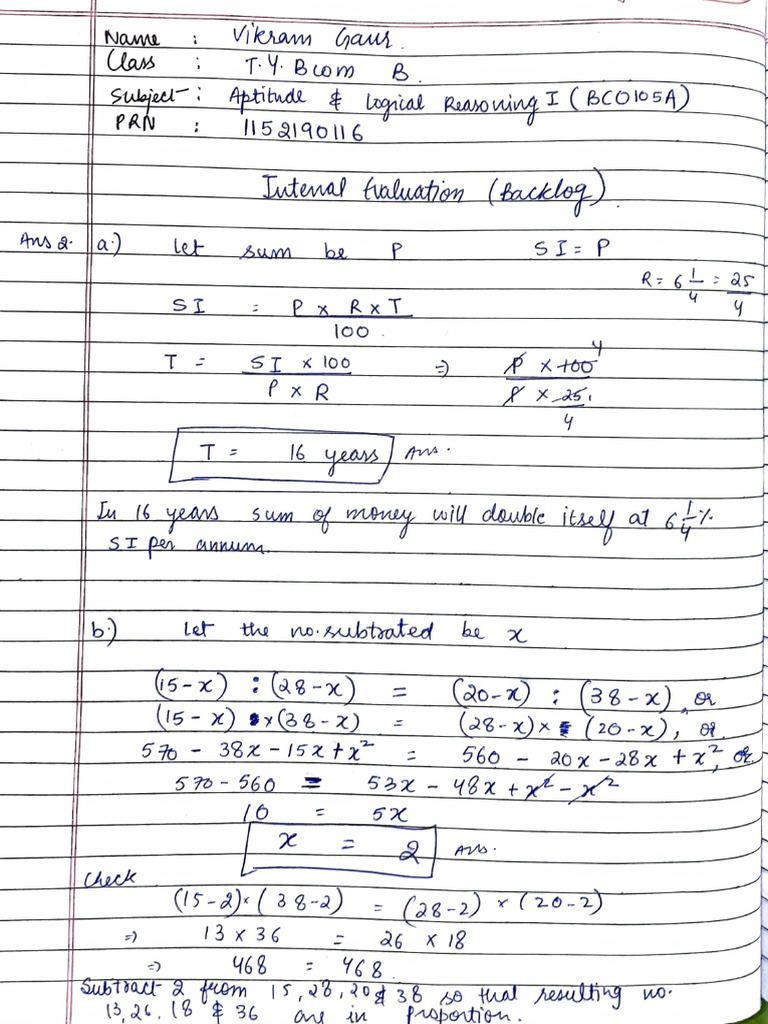 Name : Vikram Gaur.
Class : T.Y. Bcom B.
Subject : Aptitude & Logical Reasoning I (BCO105A)
PRN : 1152190116
Internal Evaluation (Backlog).
Ans 2. a.) Let sum be P SI = P
R = 6 1/4 = 25/4
SI = P x R x T / 100.
T = SI x 100 / P x R => P x 100 4 / P x 25 1 / 4
T = 16 years Ans.
In 16 years sum of money will double itself at 6 1/4 %
SI per annum.
b.) Let the no. subtrated be x
(15-x) : (28-x) = (20-x) : (38-x), or
(15-x) x (38-x) = (28-x) x (20-x), or
570 - 38x - 15x + x² = 560 - 20x - 28x + x², or
570 - 560 = 53x - 48x + x² - x²
10 = 5x
x = 2 Ans.
Check
(15-2) x (38-2) = (28-2) x (20-2)
=> 13 x 36 = 26 x 18
=> 468 = 468.
Subtract 2 from 15, 28, 20 & 38 so that resulting no.
13, 26, 18 & 36 are in proportion.